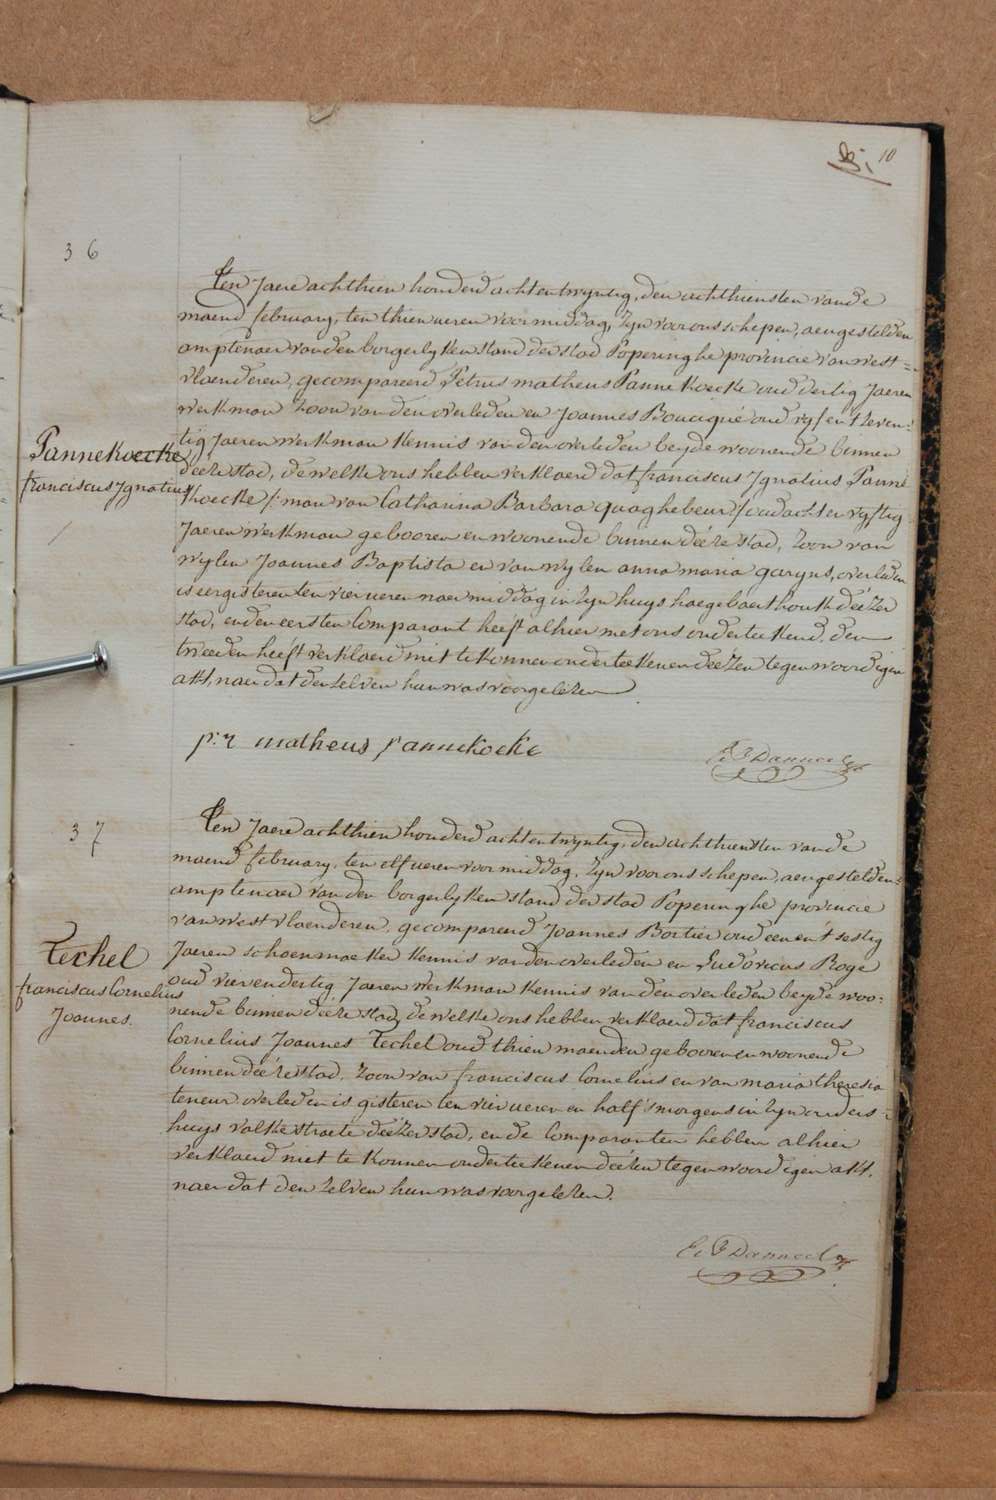 10
36
Pannekoecke
franciscus Ignatius
Ten Jaere achthien honderd achtentwyntig, den achthiensten van de
maend february, ten thien ueren voormiddag, zyn voor ons schepen, aengestelden
amptenaer van den borgerlyken stand der stad Poperinghe provincie van west=
vlaenderen, gecompareerd Petrus matheus Pannekoecke oud dertig Jaeren
werkman zoon van den overleden en Joannes Boucqué oud vyf en t'zeven=
tig Jaeren werkman kennis van den overleden beyde woonende binnen
deéze stad, de welke ons hebben verklaerd dat franciscus Ignatius Panne
koecke /: man van Catharina Barbara quaghebeur :/ oud acht en vyftig
Jaeren werkman gebooren en woonende binnen deéze stad, zoon van
wylen Joannes Baptista en van wylen anna maria garyns, overleden
is eergisteren ten vier ueren naermiddag in zyn huys haegebaerthouk deézer
stad, en den eersten Comparant heeft alhier met ons onderteekend, den
tweeden heéft verklaerd niet te konnen onderteekenen deézen tegenwoordigen
akt, naer dat den zelven hun was voorgelézen
p:r matheus pannekoeke
37
Techel
franciscus Cornelius
Joannes.
Ten Jaere achthien honderd achtentwyntig, den achthiensten van de
maend february, ten elf ueren voormiddag, zyn voor ons schepen, aengestelden=
amptenaer van den borgerlyken stand der stad Poperinghe provincie
van westvlaenderen, gecompareerd Joannes Bortier oud een en t'sestig
Jaeren schoenmaeker kennis van den overleden en Ludovicus Roge
oud vier en dertig Jaeren werkman kennis van den overleden beyde woo=
nende binnen deéze stad, de welke ons hebben verklaerd dat franciscus
Cornelius Joannes Techel oud thien maenden gebooren en woonende
binnen deéze stad, zoon van franciscus Cornelius en van maria theresia
teneur overleden is gisteren ten vier ueren en half s'morgens in zyn ouders=
huys valkestraete deézer stad, en de Comparanten hebben alhier
verklaerd niet te konnen onderteekenen deézen tegenwoordigen akt,
naer dat den zelven hun was voorgelézen.